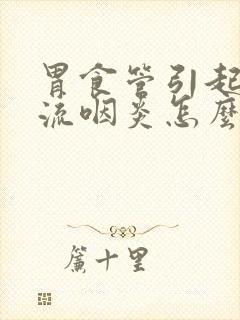 胃食管引起
流咽炎怎麼
簾十里